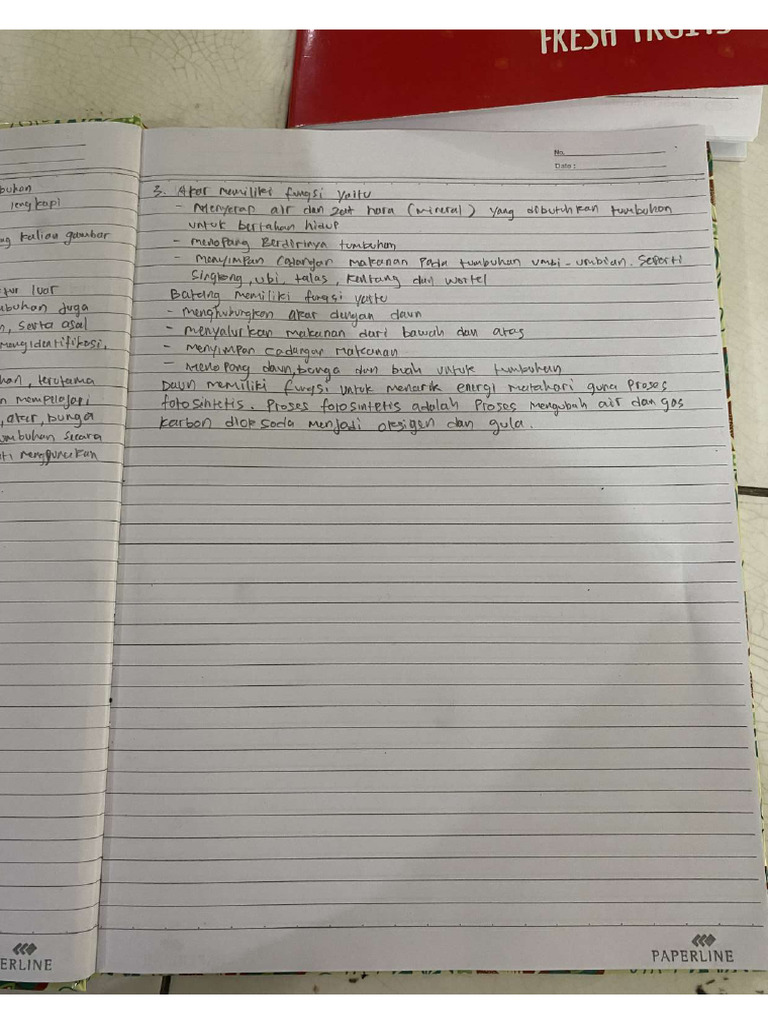 FRESH FRUITS
No.
Date :
3. Akar memiliki fungsi yaitu
- Menyerap air dan zat hara (mineral) yang dibutuhkan tumbuhan
untuk bertahan hidup
- menopang Berdirinya tumbuhan
- menyimpan cadangan makanan pada tumbuhan umbi-umbian. Seperti
Singkong, ubi, talas, kentang dan wortel
Batang memiliki fungsi yaitu
- menghubungkan akar dengan daun
- menyalurkan makanan dari bawah dan atas
- menyimpan cadangan makanan
- menopang daun, bunga dan buah untuk tumbuhan
Daun memiliki fungsi untuk menarik energi matahari guna proses
fotosintetis. Proses fotosintetis adalah Proses mengubah air dan gas
karbon dioksoda menjadi oksigen dan gula.
PAPERLINE
buhan
lengkapi
ng kalian gambar
tur luar
mbuhan juga
n, serta asal
mengidentifikasi,
han, terutama
n mempelajari
, akar, bunga
umbuhan secara
ti mengunakan
ERLINE